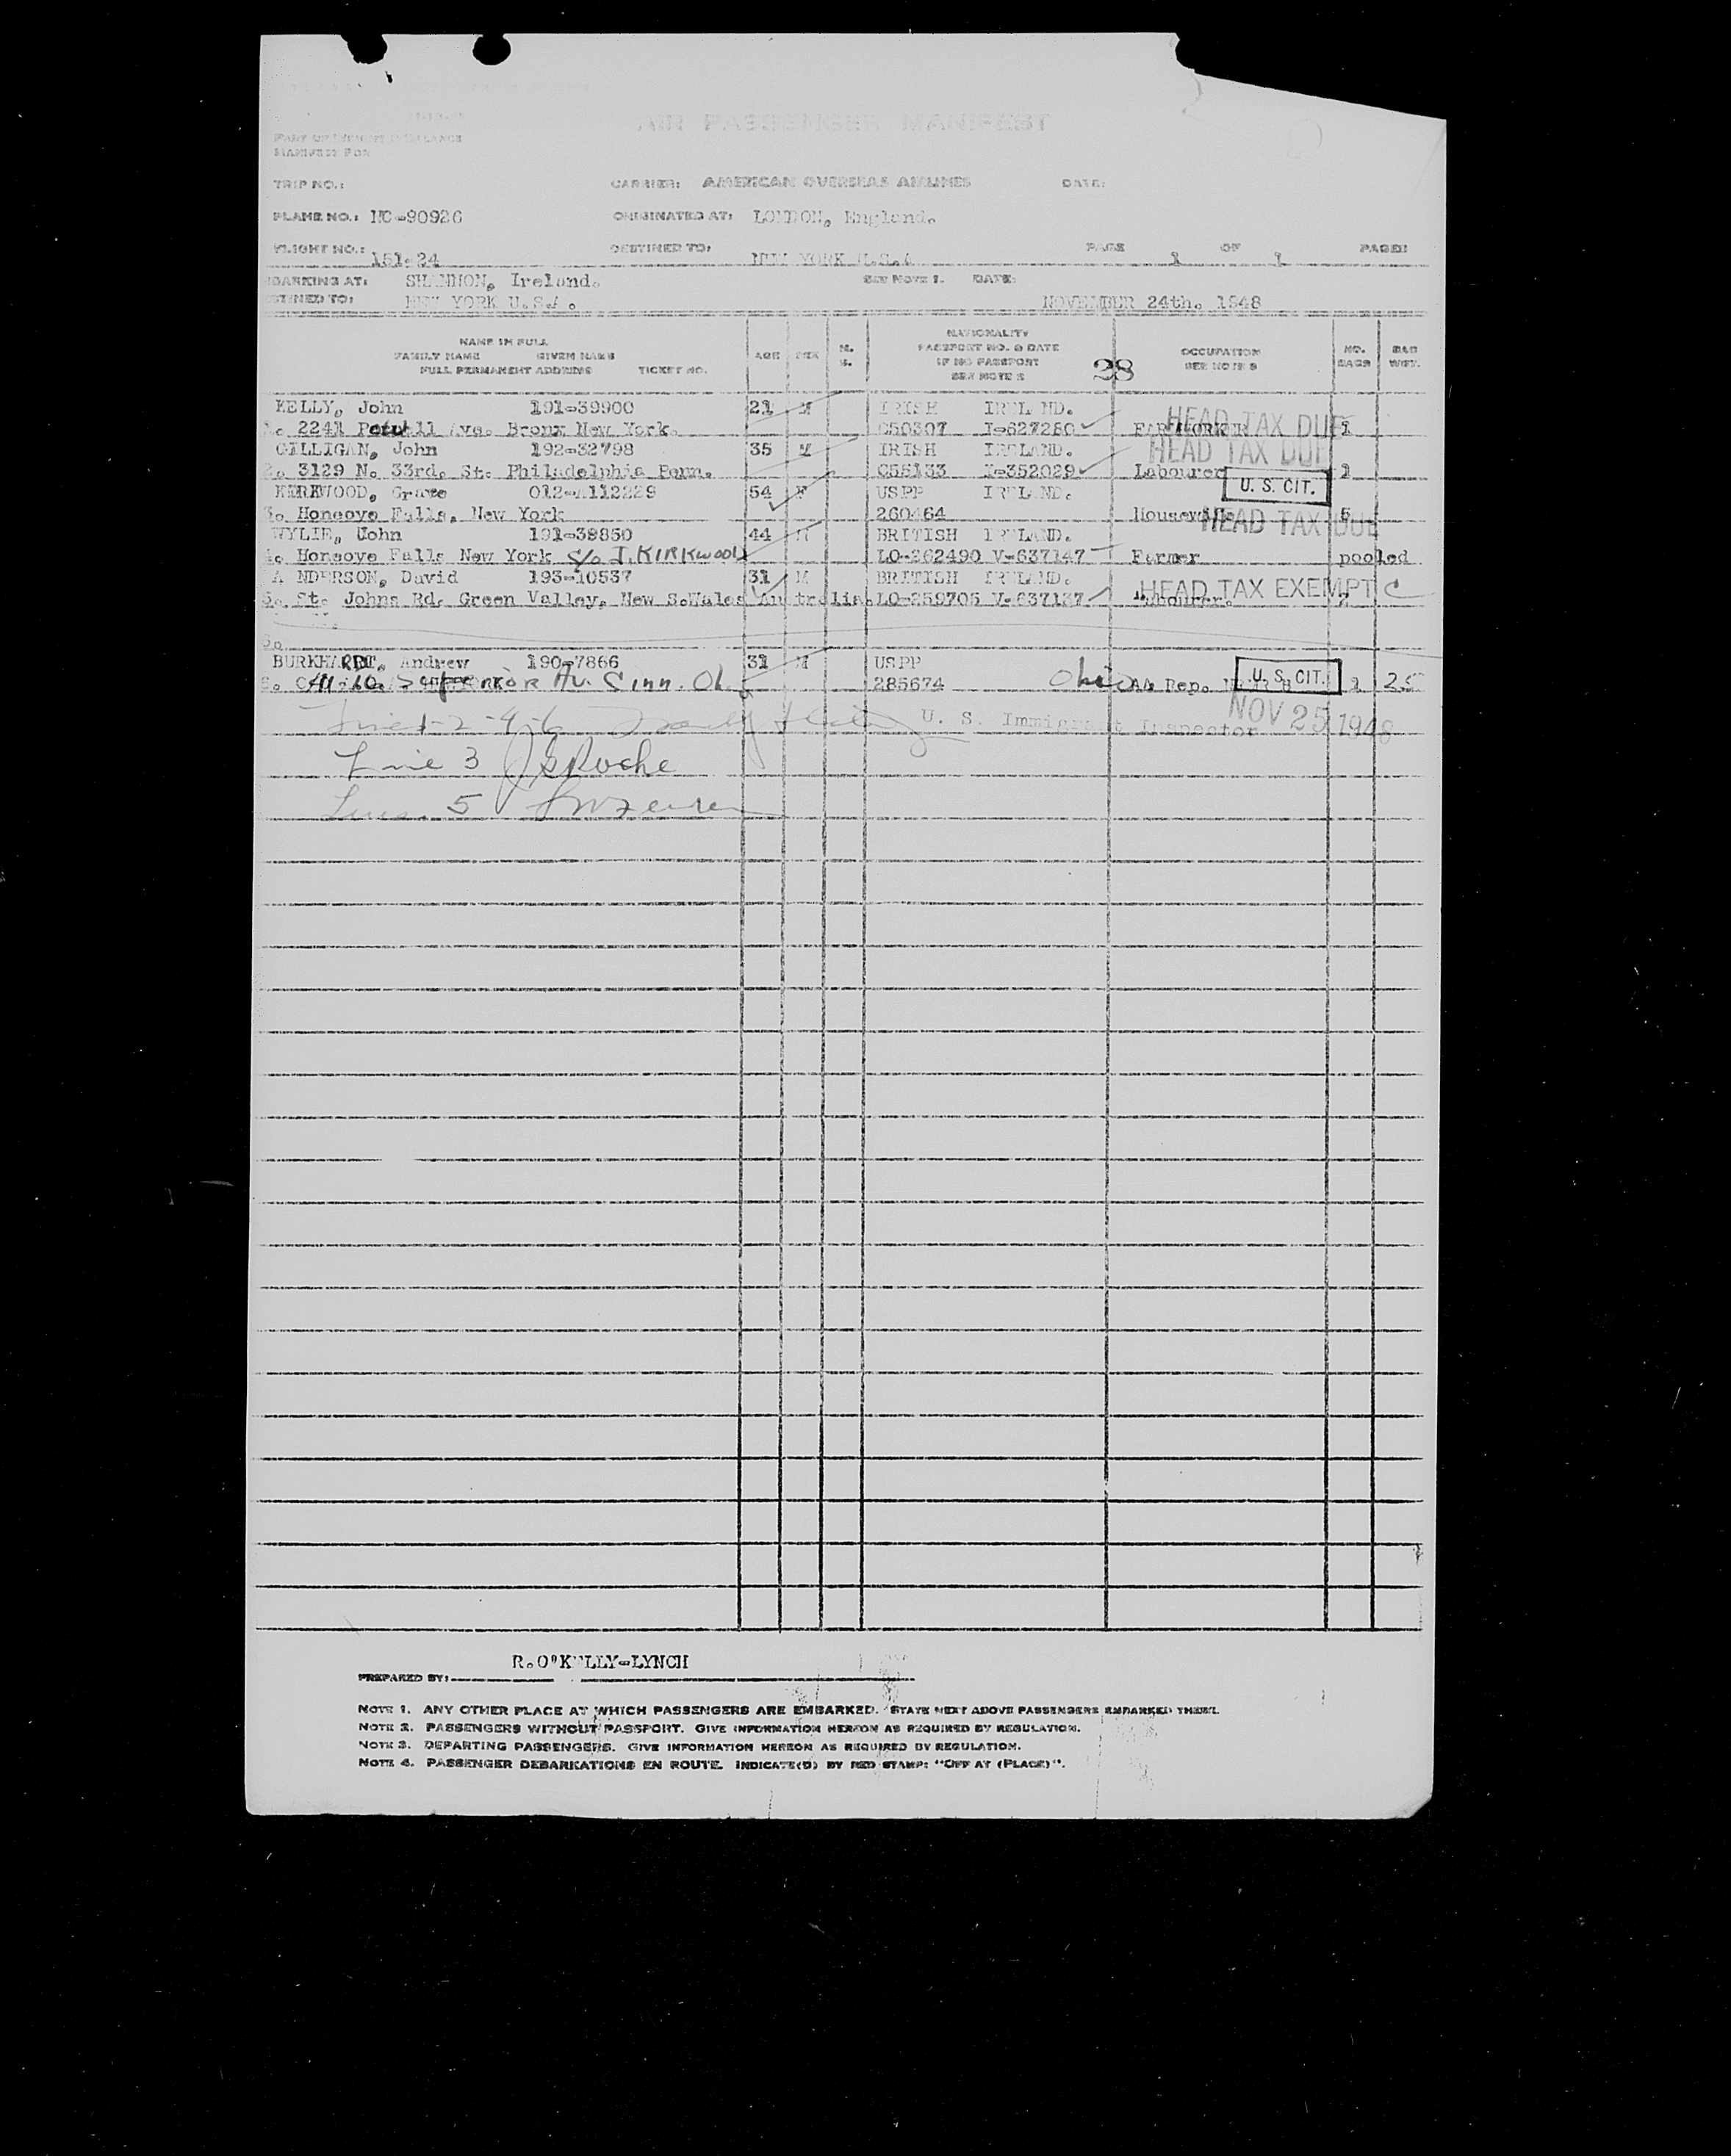 AIR PASSENGER MANIFEST
PART OF WEIGHT & BALANCE
MANIFEST FOR
TRIP NO.: CARRIER: AMERICAN OVERSEAS AIRLINES DATE:
PLANE NO.: NC-90926 ORIGINATED AT: LONDON, England.
FLIGHT NO.: 151-24 DESTINED TO: NEW YORK U.S.A PAGE 1 OF 1 PAGES
BARKING AT: SHANNON, Ireland. SEE NOTE 1. DATE:
TINED TO: NEW YORK U.S.A. NOVEMBER 24th. 1948
NAME IN FULL
FAMILY NAME GIVEN NAME
FULL PERMANENT ADDRESS TICKET NO.
AGE SEX
NATIONALITY
PASSPORT NO. & DATE
IF NO PASSPORT
SEE NOTE 2
28
OCCUPATION
SEE NOTE 3
NO. BAGS
BAG WGT.
KELLY, John 191-39900 21 M IRISH IRELAND. HEAD TAX DUE
1. 2241 Powell Ave. Bronx New York. C50307 I-627280 FARMWORKER 1
GILLIGAN, John 192-32798 35 M IRISH IRELAND. HEAD TAX DUE
2. 3129 N. 33rd. St. Philadelphia Penn. C55133 I-352029 Labourer 1
KIRKWOOD, Grace 012-A112229 54 F USPP IRELAND. U. S. CIT.
3. Honeoye Falls, New York 260464 Housewife 5
WYLIE, John 191-38850 44 M BRITISH IRELAND. HEAD TAX DUE
4. Honeoye Falls New York c/o J. KIRKWOOD LO-262490 V-637147 Farmer pooled
A NDERSON, David 193-10537 31 M BRITISH IRELAND. HEAD TAX EXEMPT C
5. St. Johns Rd. Green Valley, New S.Wales Australia. LO-259705 V-637137 Labourer.
6.
BURKHARDT, Andrew 190-7866 31 M USPP U. S. CIT.
6. Superior Av. Cinn. Oh. 285674 Ohio AA Rep. 1 25
U. S. Immigrant Inspector NOV 25 1948
Line 3 Roche
Line 5
R.O'KELLY-LYNCH
PREPARED BY:
NOTE 1. ANY OTHER PLACE AT WHICH PASSENGERS ARE EMBARKED. STATE NEXT ABOVE PASSENGERS EMBARKED THERE.
NOTE 2. PASSENGERS WITHOUT PASSPORT. GIVE INFORMATION HEREON AS REQUIRED BY REGULATION.
NOTE 3. DEPARTING PASSENGERS. GIVE INFORMATION HEREON AS REQUIRED BY REGULATION.
NOTE 4. PASSENGER DEBARKATIONS EN ROUTE. INDICATE(D) BY RED STAMP: "OFF AT (PLACE)".